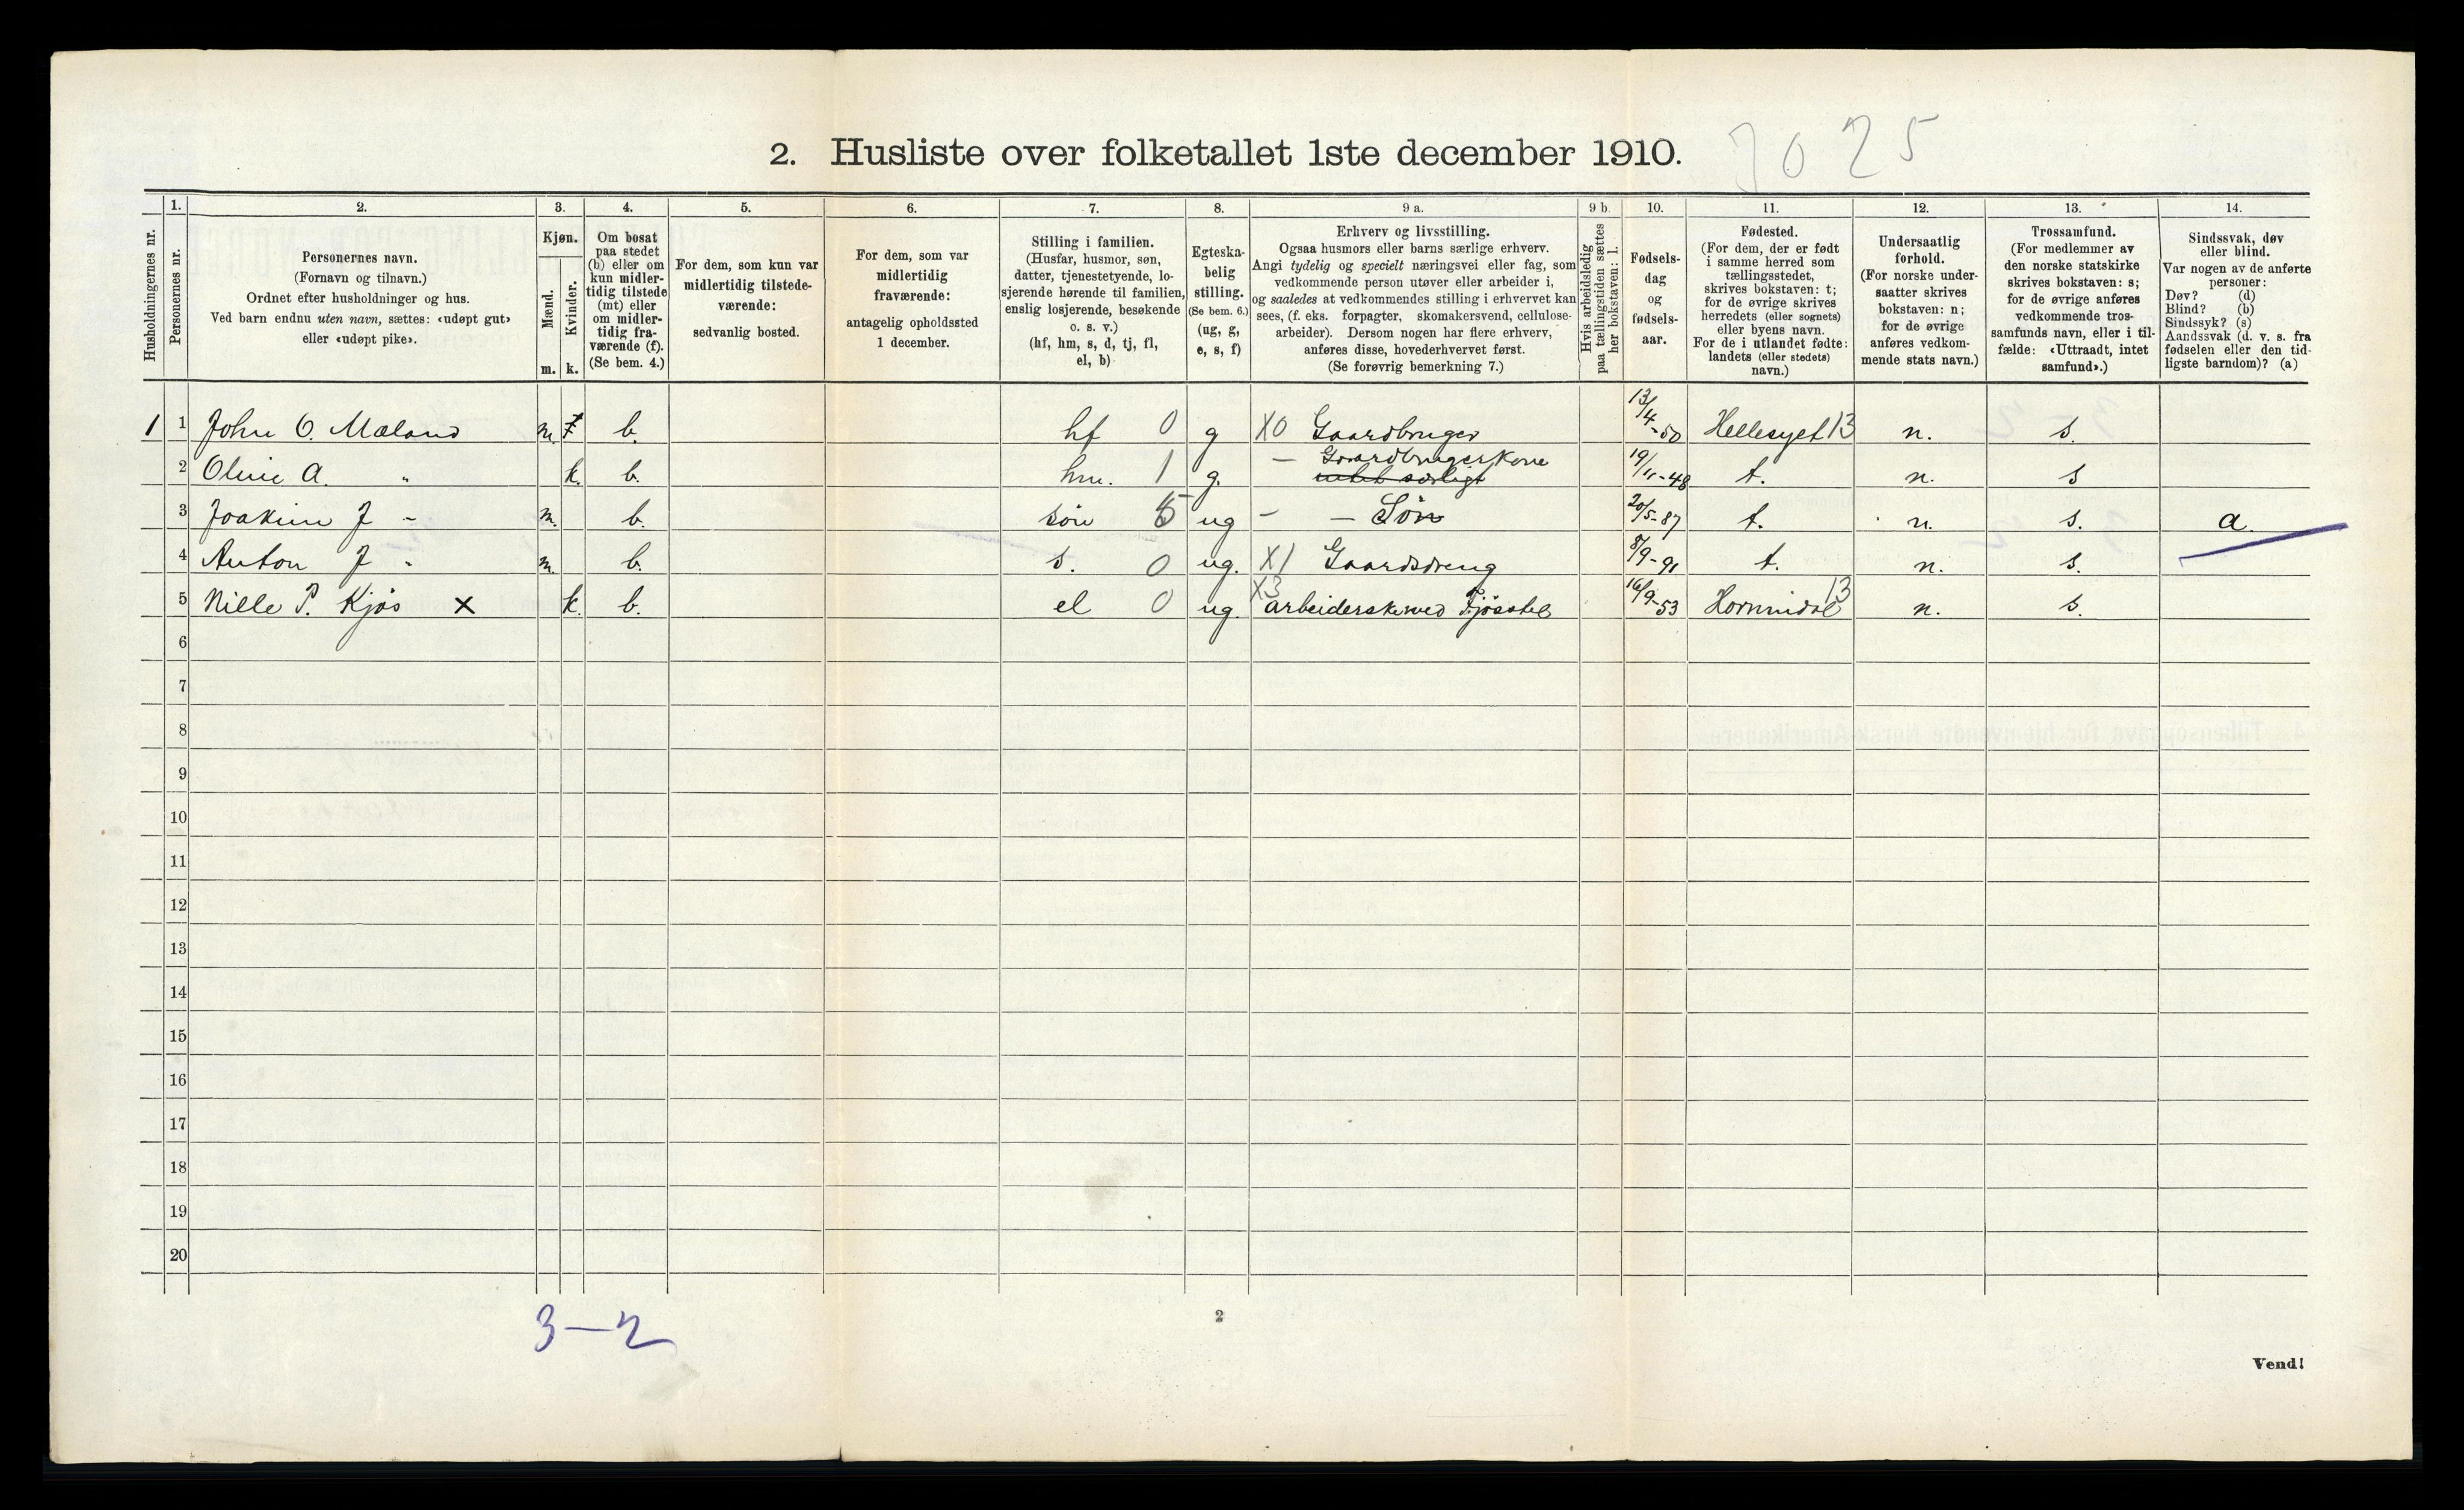 2. Husliste over folketallet 1ste december 1910.
7025
Husholdningernes nr.
1.
Personernes nr.
2.
Personernes navn.
(Fornavn og tilnavn.)
Ordnet efter husholdninger og hus.
Ved barn endnu uten navn, sættes: «udøpt gut»
eller «udøpt pike».
3.
Kjøn.
Mænd.
Kvinder.
m. k.
4.
Om bosat
paa stedet
(b) eller om
kun midler-
tidig tilstede
(mt) eller
om midler-
tidig fra-
værende (f).
(Se bem. 4.)
5.
For dem, som kun var
midlertidig tilstede-
værende:
sedvanlig bosted.
6.
For dem, som var
midlertidig
fraværende:
antagelig opholdssted
1 december.
7.
Stilling i familien.
(Husfar, husmor, søn,
datter, tjenestetyende, lo-
sjerende hørende til familien,
enslig losjerende, besøkende
o. s. v.)
(hf, hm, s, d, tj, fl,
el, b)
8.
Egteska-
belig
stilling.
(Se bem. 6.)
(ug, g,
e, s, f)
9 a.
Erhverv og livsstilling.
Ogsaa husmors eller barns særlige erhverv.
Angi tydelig og specielt næringsvei eller fag, som
vedkommende person utøver eller arbeider i,
og saaledes at vedkommendes stilling i erhvervet kan
sees, (f. eks. forpagter, skomakersvend, cellulose-
arbeider). Dersom nogen har flere erhverv,
anføres disse, hovederhvervet først.
(Se forøvrig bemerkning 7.)
9 b.
Hvis arbeidsledig
paa tællingstiden sættes
her bokstaven: l.
10.
Fødsels-
dag
og
fødsels-
aar.
11.
Fødested.
(For dem, der er født
i samme herred som
tællingsstedet,
skrives bokstaven: t;
for de øvrige skrives
herredets (eller sognets)
eller byens navn.
For de i utlandet fødte:
landets (eller stedets)
navn.)
12.
Undersaatlig
forhold.
(For norske under-
saatter skrives
bokstaven: n;
for de øvrige
anføres vedkom-
mende stats navn.)
13.
Trossamfund.
(For medlemmer av
den norske statskirke
skrives bokstaven: s;
for de øvrige anføres
vedkommende tros-
samfunds navn, eller i til-
fælde: «Uttraadt, intet
samfund».)
14.
Sindssvak, døv
eller blind.
Var nogen av de anførte
personer:
Døv? (d)
Blind? (b)
Sindssyk? (s)
Aandssvak (d. v. s. fra
fødselen eller den tid-
ligste barndom)? (a)
1 1 John O. Mæland m. b. hf 0 g X0 Gaardbruger 13/4-50 Hellesylt 13 n. s.
2 Oline A. " k. b. hm. 1 g. - Gaardbrugerskone intet særligt 19/11-48 t. n. s
3 Joakim J - m. b. søn 5 ug - - Søn 20/5-87 t. n. s. a.
4 Anton J - m. b. s. 0 ug. X1 Gaardsdreng 8/9-91 t. n. s.
5 Nille P. Kjøs X k. b. el 0 ug. X3 arbeiderske ved Fjøsstel 16/9-53 Hornindal 13 n. s.
6
7
8
9
10
11
12
13
14
15
16
17
18
19
20
3-2
2
Vend!